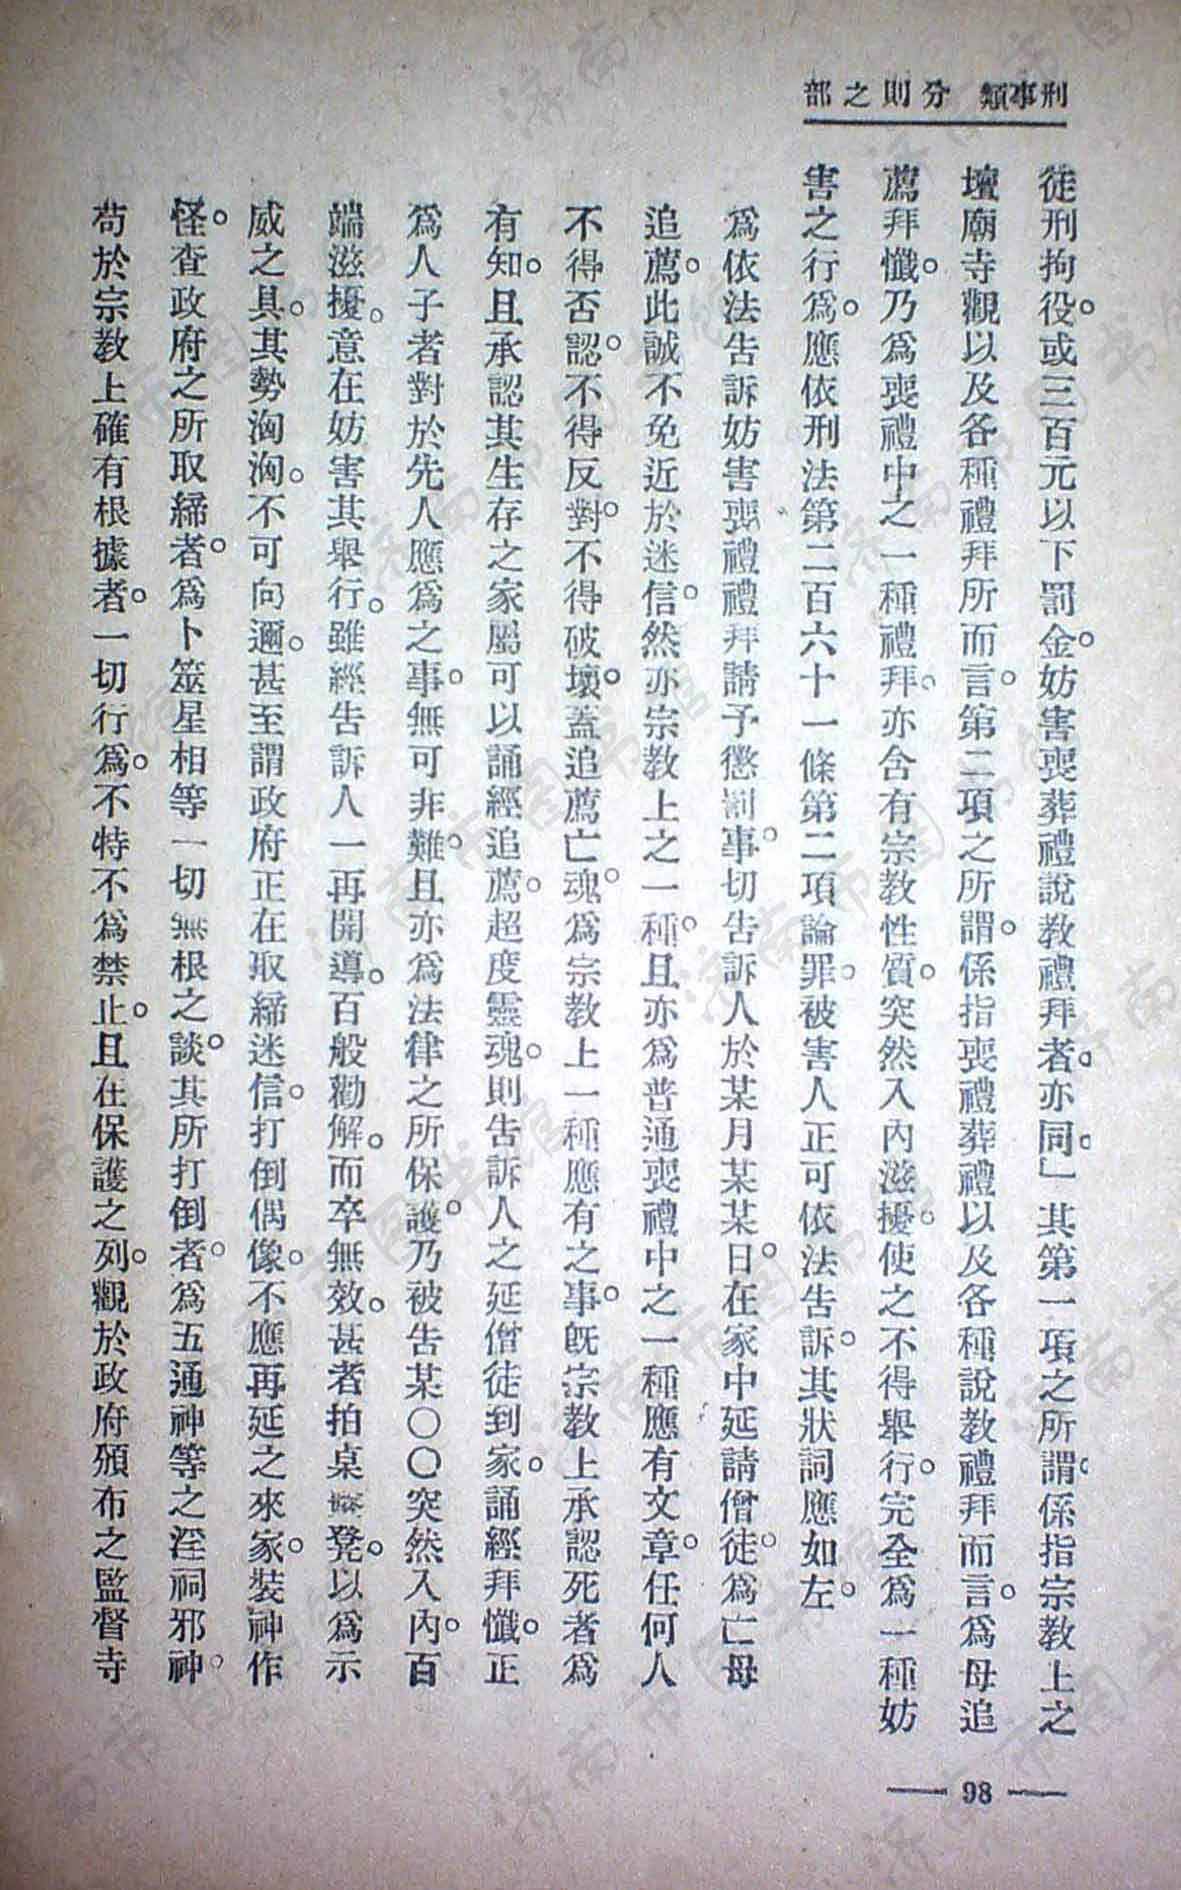 刑事類　分則之部
徒刑拘役。或三百元以下罰金。妨害喪葬禮說教禮拜者。亦同。」其第一項之所謂。係指宗教上之
壇廟寺觀以及各種禮拜所而言。第二項之所謂。係指喪禮葬禮以及各種說教禮拜而言。爲母追
薦拜懺。乃爲喪禮中之一種禮拜。亦含有宗教性質。突然入內滋擾。使之不得舉行。完全爲一種妨
害之行爲。應依刑法第二百六十一條第二項論罪。被害人正可依法告訴。其狀詞應如左。
爲依法告訴妨害喪禮禮拜請予懲罰事。切告訴人於某月某某日。在家中延請僧徒。爲亡母
追薦。此誠不免近於迷信。然亦宗教上之一種。且亦爲普通喪禮中之一種應有文章。任何人
不得否認。不得反對。不得破壞。蓋追薦亡魂。爲宗教上一種應有之事。旣宗教上承認死者爲
有知。且承認其生存之家屬可以誦經追薦。超度靈魂。則告訴人之延僧徒到家。誦經拜懺。正
爲人子者對於先人應爲之事。無可非難。且亦爲法律之所保護。乃被告某〇〇突然入內。百
端滋擾。意在妨害其舉行。雖經告訴人一再開導。百般勸解。而卒無效。甚者拍桌凳。以爲示
威之具。其勢洶洶。不可向邇。甚至謂政府正在取締迷信。打倒偶像。不應再延之來家。裝神作
怪。查政府之所取締者。爲卜筮星相等一切無根之談。其所打倒者。爲五通神等之淫祠邪神。
苟於宗教上確有根據者。一切行爲。不特不爲禁止。且在保護之列。觀於政府頒布之監督寺
98
济南市图书馆